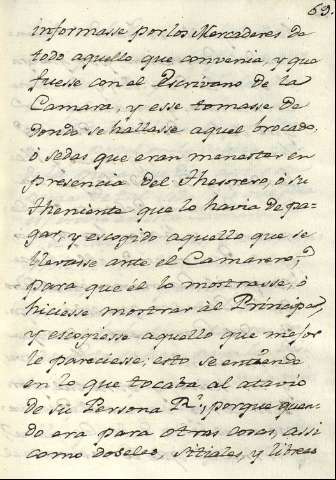 69.
informasse por los Mercaderes de
todo aquello que convenia, y que
fuesse con el Escrivano de la
Camara, y esse tomasse de
donde se hallasse aquel brocado,
ó sedas que eran menester en
presencia del Thesorero, ó su
theniente que lo havia de pa-
gar, y escogido aquello que se
llevasse ante el Camarero,
para que él lo mostrasse, ó
hiciesse mostrar àl Principe,
y escogiesse aquello que mejor
le pareciesse; esto se entiende
en lo que tocaba al atavio
de su Persona Rl, porque quan-
do era para otras cosas, assi
como doseles, sitiales, y libreas